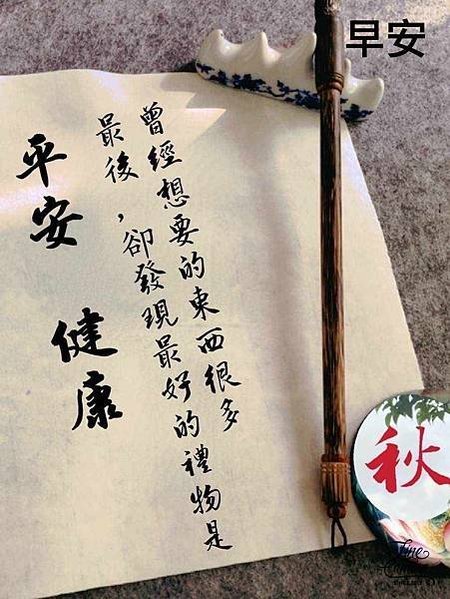 早安
曾經想要的東西很多
最後，卻發現最好的禮物是
平安
健康
秋